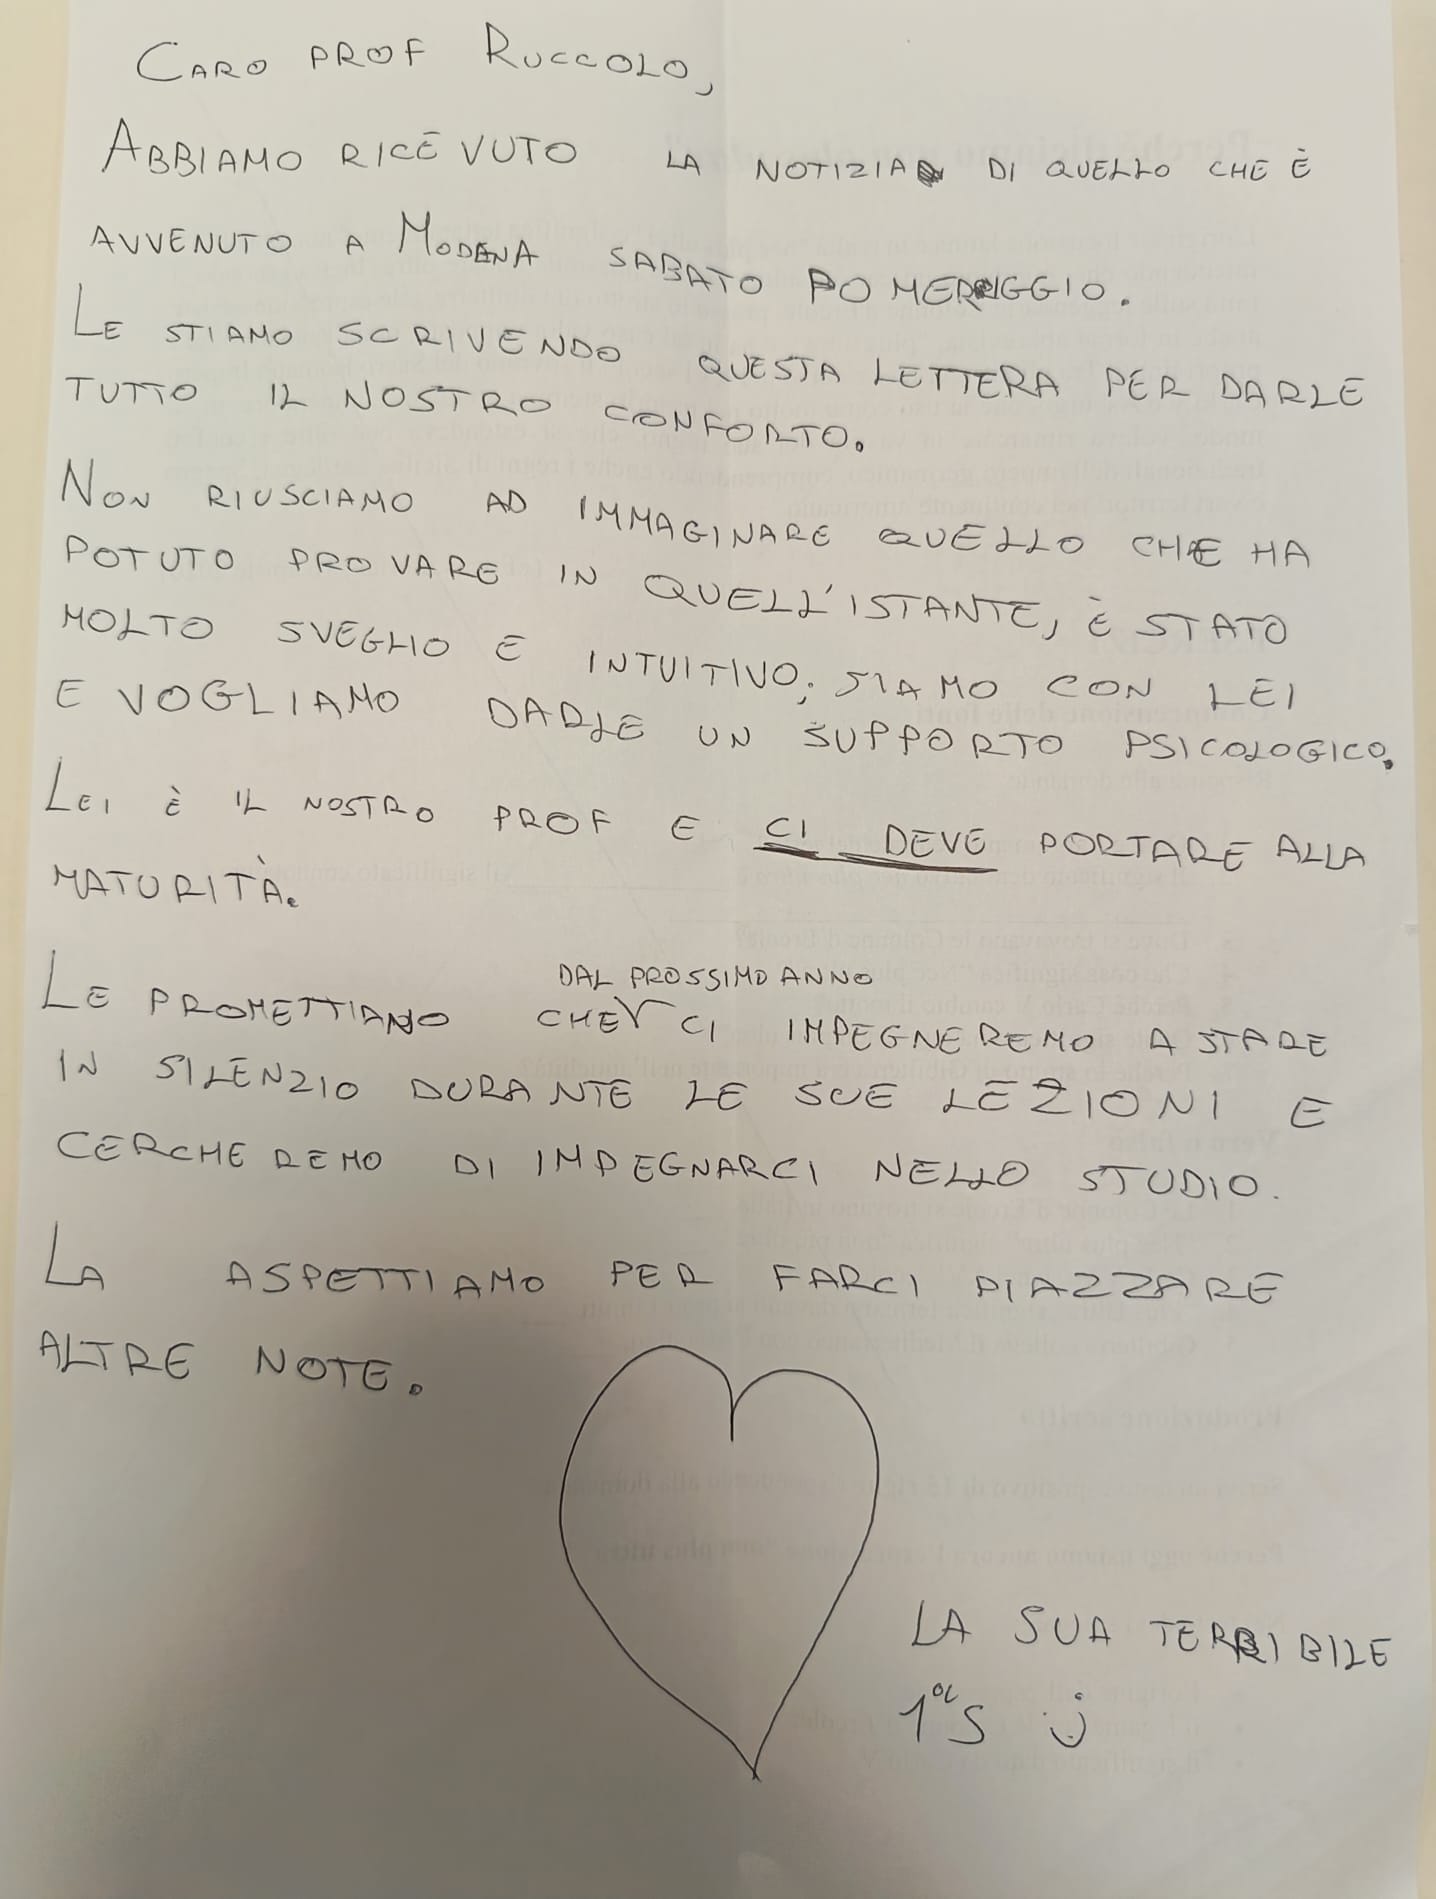 CARO PROF RUCCOLO,
ABBIAMO RICEVUTO LA NOTIZIA DI QUELLO CHE È
AVVENUTO A MODENA SABATO POMERIGGIO.
LE STIAMO SCRIVENDO QUESTA LETTERA PER DARLE
TUTTO IL NOSTRO CONFORTO.
NON RIUSCIAMO AD IMMAGINARE QUELLO CHE HA
POTUTO PROVARE IN QUELL'ISTANTE, È STATO
MOLTO SVEGLIO E INTUITIVO, SIAMO CON LEI
E VOGLIAMO DARLE UN SUPPORTO PSICOLOGICO.
LEI È IL NOSTRO PROF E CI DEVE PORTARE ALLA
MATURITÀ.
DAL PROSSIMO ANNO
LE PROMETTIAMO CHE CI IMPEGNEREMO A STARE
IN SILENZIO DURANTE LE SUE LEZIONI E
CERCHEREMO DI IMPEGNARCI NELLO STUDIO.
LA ASPETTIAMO PER FARCI PIAZZARE
ALTRE NOTE.
LA SUA TERRIBILE
1ª S :)